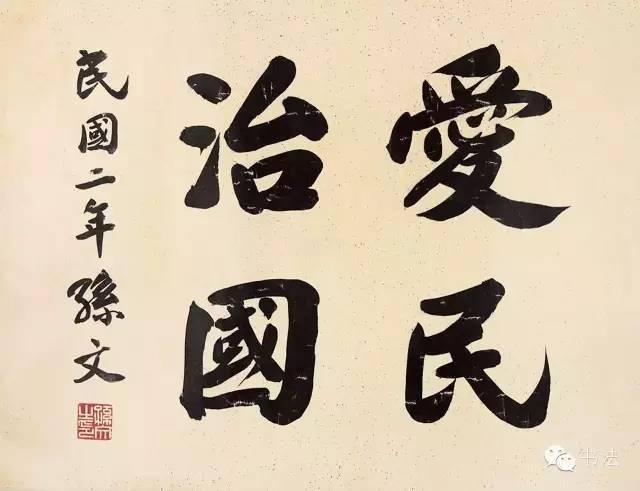 愛民
治國
民國二年孫文
孫文之印
书法